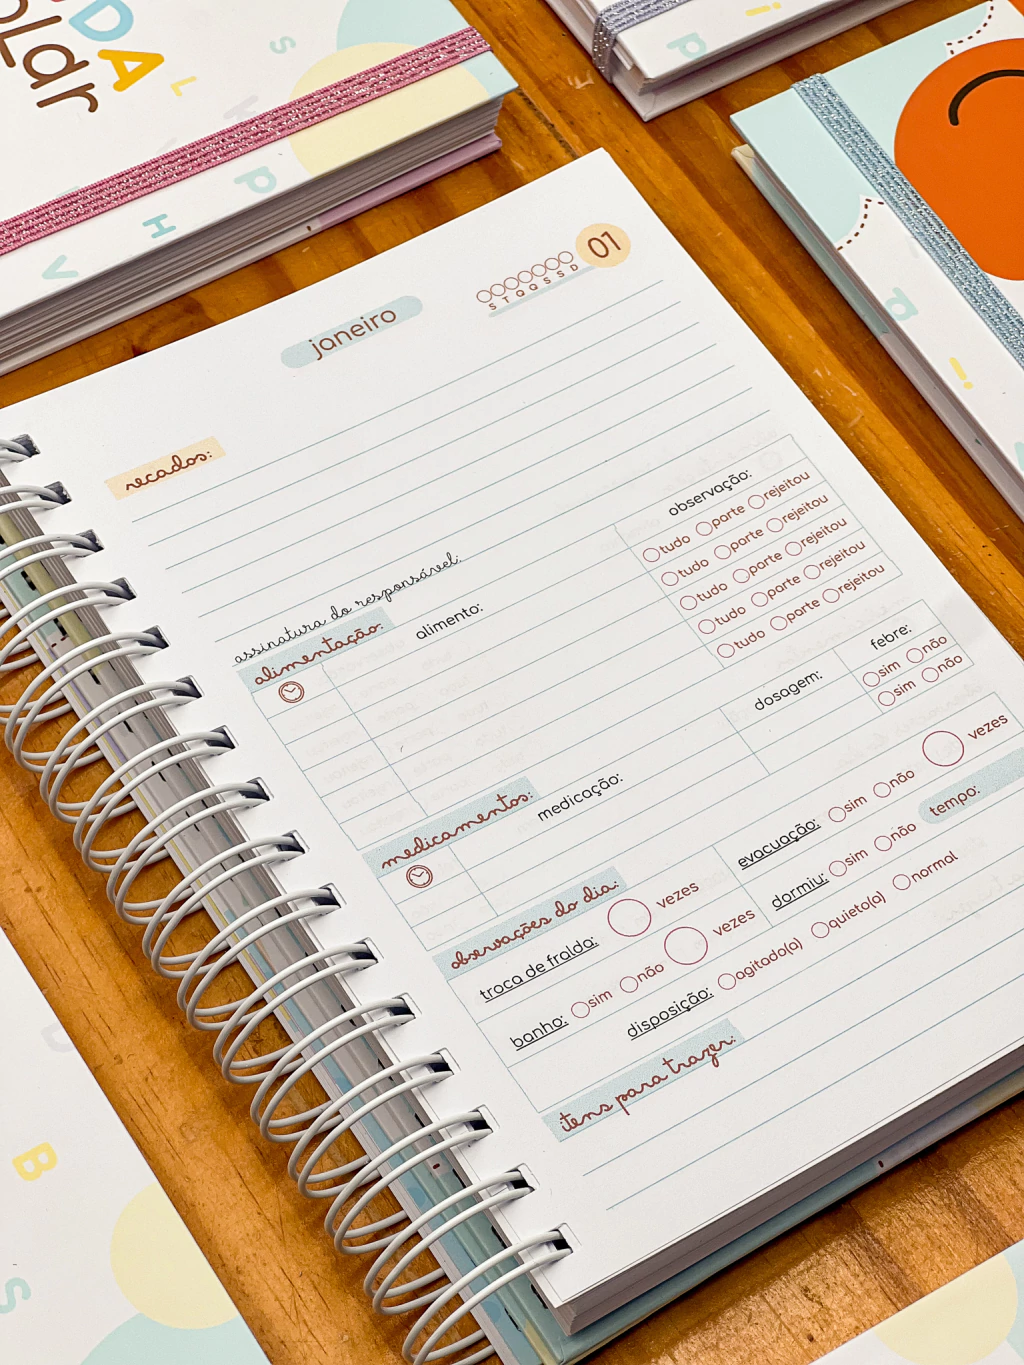 DA
janeiro
S T Q Q S S D
01
recados:
assinatura do responsável:
alimentação:
alimento:
observação:
tudo parte rejeitou
tudo parte rejeitou
tudo parte rejeitou
tudo parte rejeitou
tudo parte rejeitou
medicamentos:
medicação:
dosagem:
febre:
sim não
sim não
observações do dia:
troca de fralda: vezes
evacuação: sim não vezes
banho: sim não vezes
dormiu: sim não
tempo:
disposição: agitado(a) quieto(a) normal
itens para trazer: